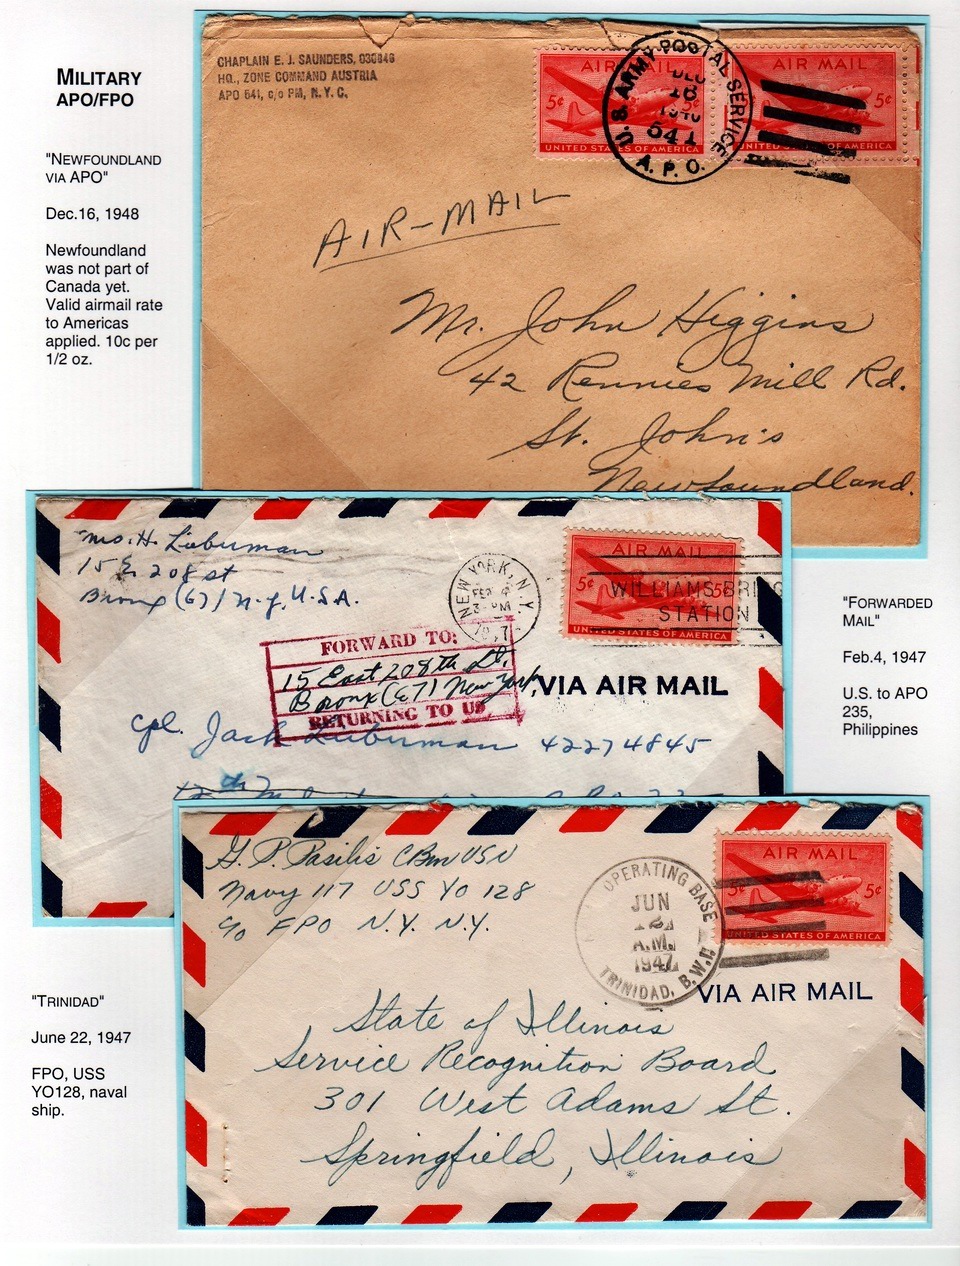 MILITARY
APO/FPO
"NEWFOUNDLAND
VIA APO"
Dec.16, 1948
Newfoundland
was not part of
Canada yet.
Valid airmail rate
to Americas
applied. 10c per
1/2 oz.
CHAPLAIN E. J. SAUNDERS,
HQ., ZONE COMMAND AUSTRIA
APO 541, c/o PM, N.Y.C.
AIR MAIL
5¢ 5¢
UNITED STATES OF AMERICA
U.S. ARMY POSTAL SERVICE
DEC
16
541
A.P.O.
AIR MAIL
UNITED STATES OF AMERICA
AIR-MAIL
Mr. John Higgins
42 Rennies Mill Rd.
St. John's
Newfoundland.
H. Lieberman
15 E 208 st
Bronx (67) N.Y. U.S.A.
NEW YORK, N.Y.
FEB 4
3 PM
AIR MAIL
5¢ 5¢
WILLIAMS BRIDG
STATION
UNITED STATES OF AMERICA
FORWARD TO:
15 East 208th St.
Bronx (67) New York,
RETURNING TO US
VIA AIR MAIL
Cpl. Jack Lieberman 42274845
"FORWARDED
MAIL"
Feb.4, 1947
U.S. to APO
235,
Philippines
G. P. Pasilis CBM USN
Navy 117 USS YO 128
c/o FPO N.Y. N.Y.
OPERATING BASE
JUN
A.M.
1947
TRINIDAD, B.W.I.
AIR MAIL
5¢ 5¢
UNITED STATES OF AMERICA
VIA AIR MAIL
State of Illinois
Service Recognition Board
301 West Adams St.
Springfield, Illinois
"TRINIDAD"
June 22, 1947
FPO, USS
YO128, naval
ship.